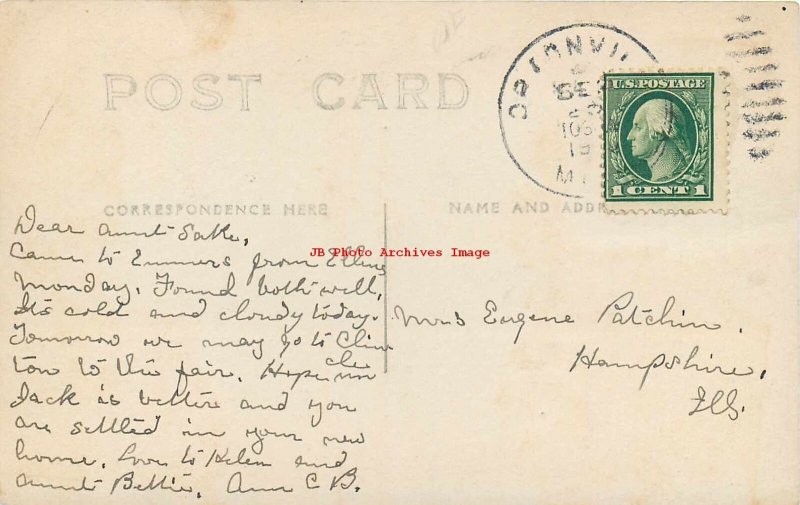 POST CARD
ORTONVIL
SE
10
19
MI
U.S. POSTAGE
1 CENT 1
CORRESPONDENCE HERE
NAME AND ADDR
JB Photo Archives Image
Dear Aunt Sate,
Came to Emmers from Ellens
Monday. Found both well,
Its cold and cloudy today.
Tomorrow we may go to Clin
ton to the fair. Hope
Jack is better and you
are settled in your new
home. Love to Helen and
Aunt Bettie. Ann C B.
Mrs Eugene Patchin.
Hampshire,
Ills.